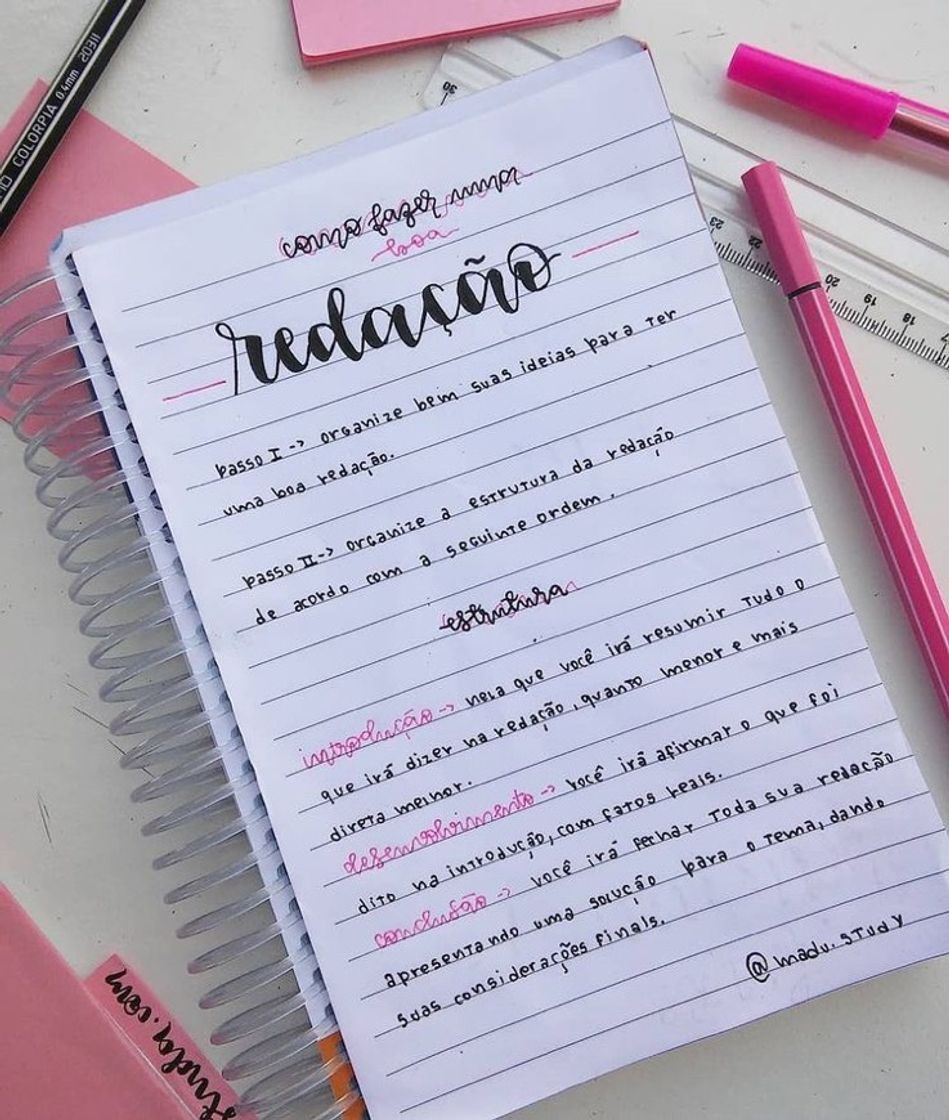 COLORPIA 0.4mm 20311
30
como fazer uma
boa
redação
passo I -> organize bem suas ideias para ter
uma boa redação.
passo II -> organize a estrutura da redação
de acordo com a seguinte ordem.
estrutura
introdução -> nela que você irá resumir tudo o
que irá dizer na redação, quanto menor e mais
direta melhor.
desenvolvimento -> você irá afirmar o que foi
dito na introdução, com fatos reais.
conclusão -> você irá fechar toda sua redação
apresentando uma solução para o tema, dando
suas considerações finais.
@madu.study
23 22 20 19 18